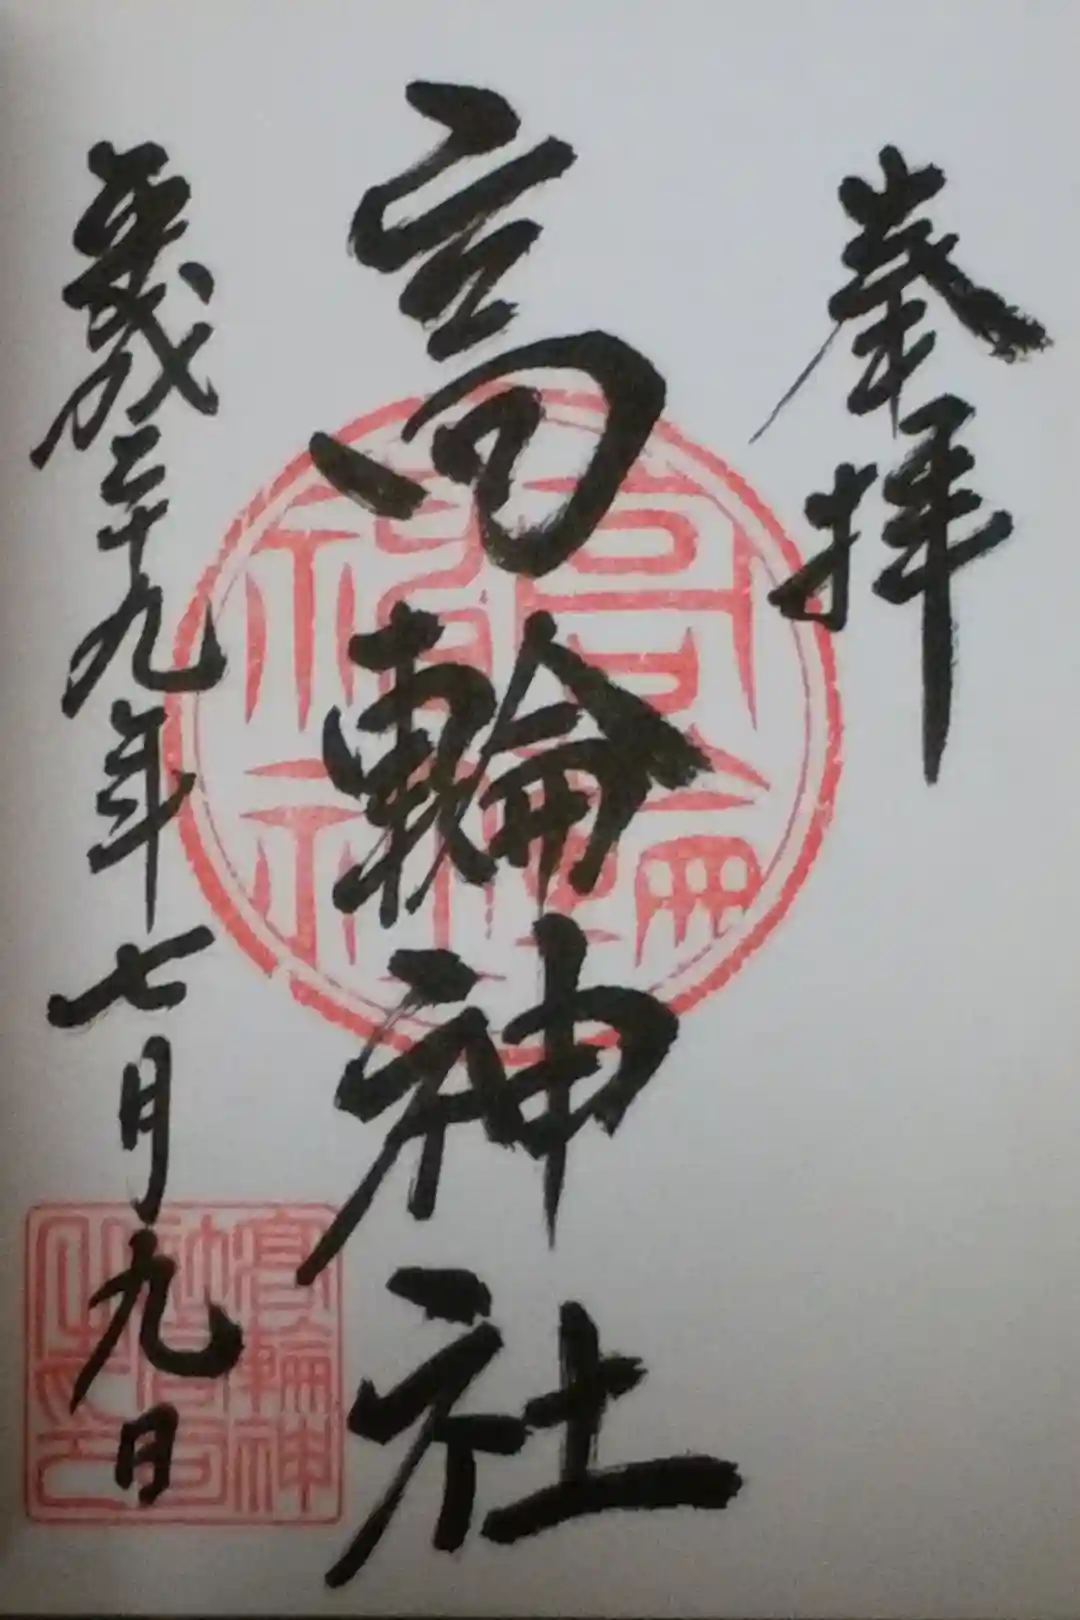 奉拝
高輪神社
平成二十九年七月九日
高輪神
社宮司
之印